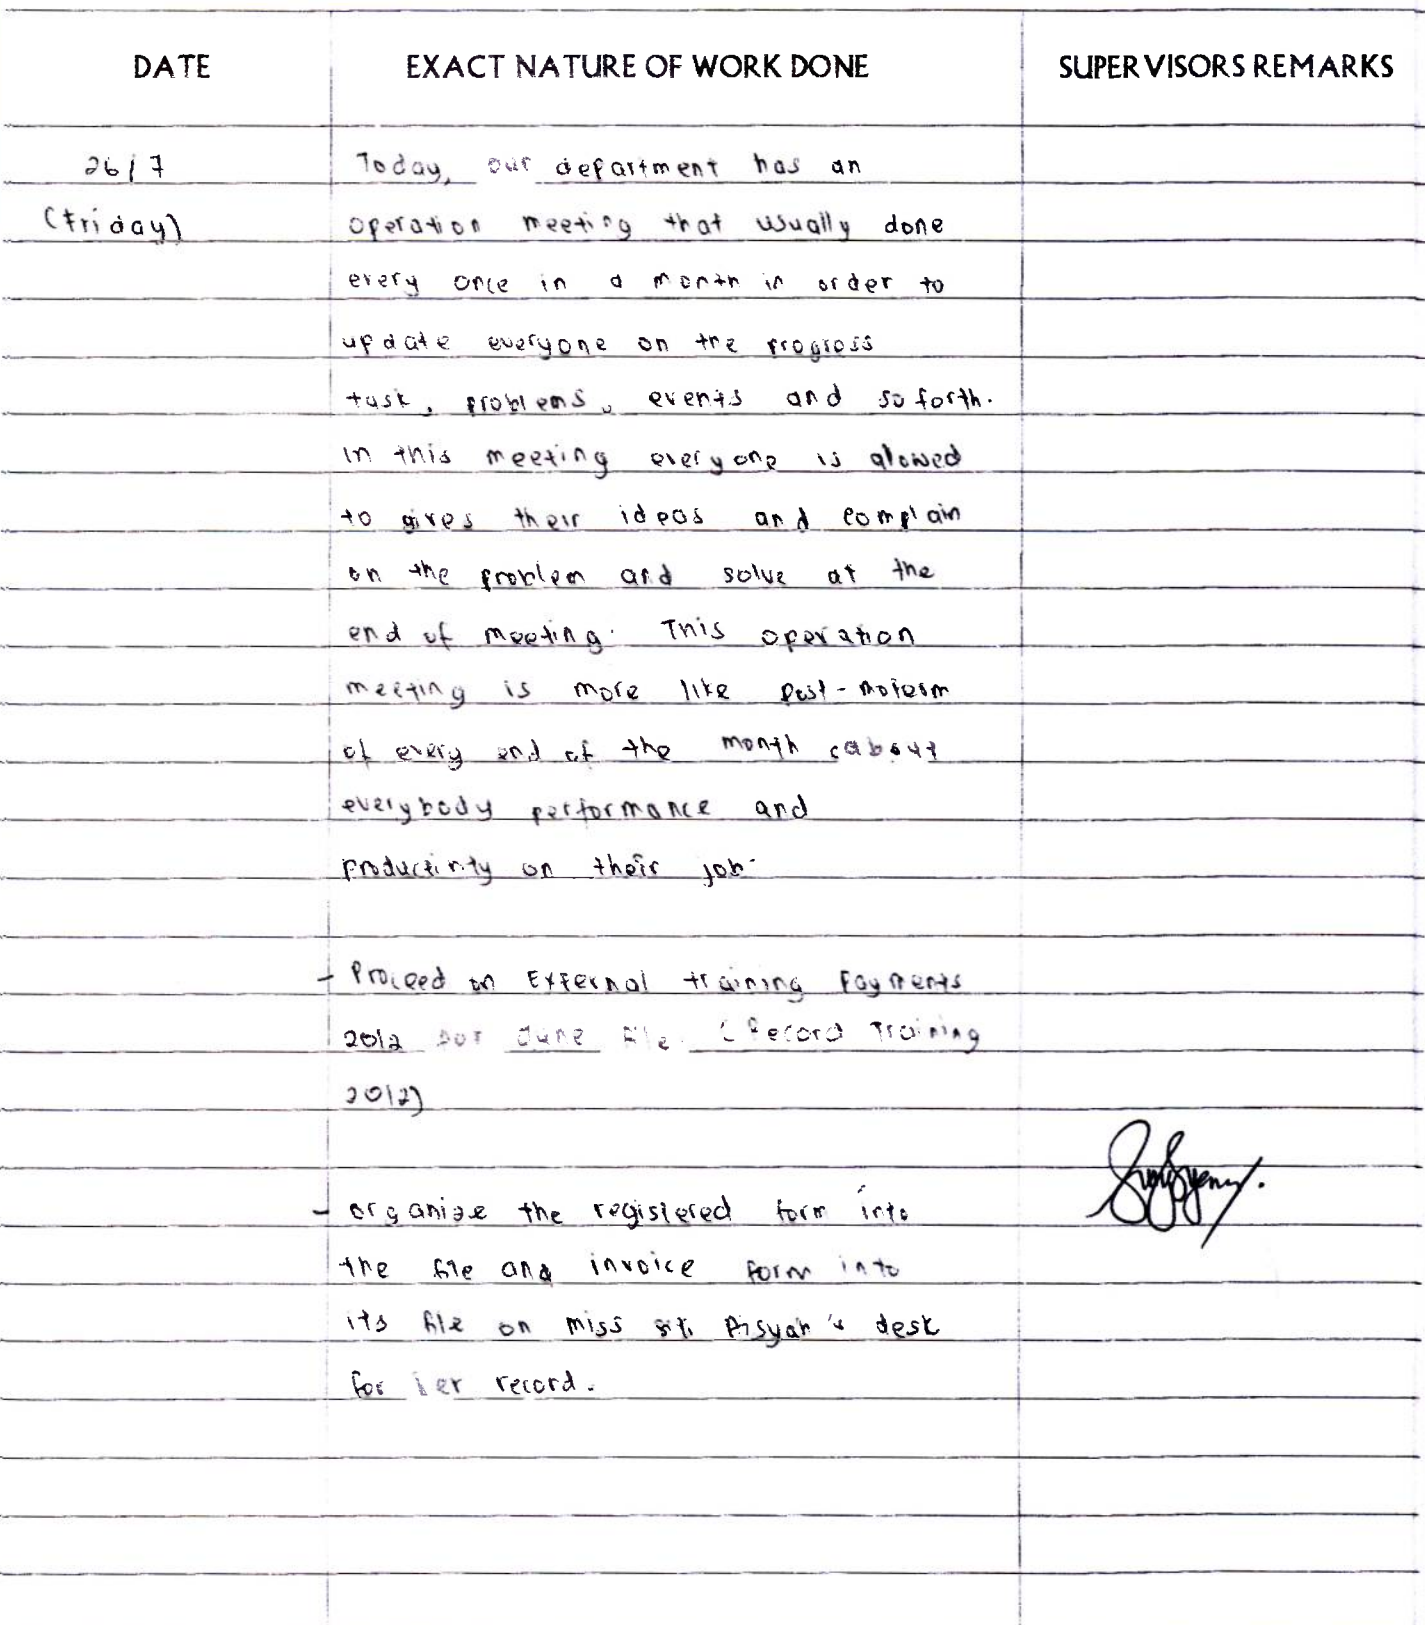 DATE EXACT NATURE OF WORK DONE SUPERVISORS REMARKS
26/7 Today, our department has an
(Friday) operation meeting that usually done
every once in a month in order to
update everyone on the progress
task, problems, events and so forth.
In this meeting everyone is alowed
to gives their ideas and complain
on the problem and solve at the
end of meeting. This operation
meeting is more like post-motesm
of every end of the month about
everybody performance and
productivity on their job.
- Proceed on External training Payments
2012 June file. (Record Training
2012)
- organize the registered form into
the file and invoice form into
its file on miss siti Aisyah's desk
for her record.